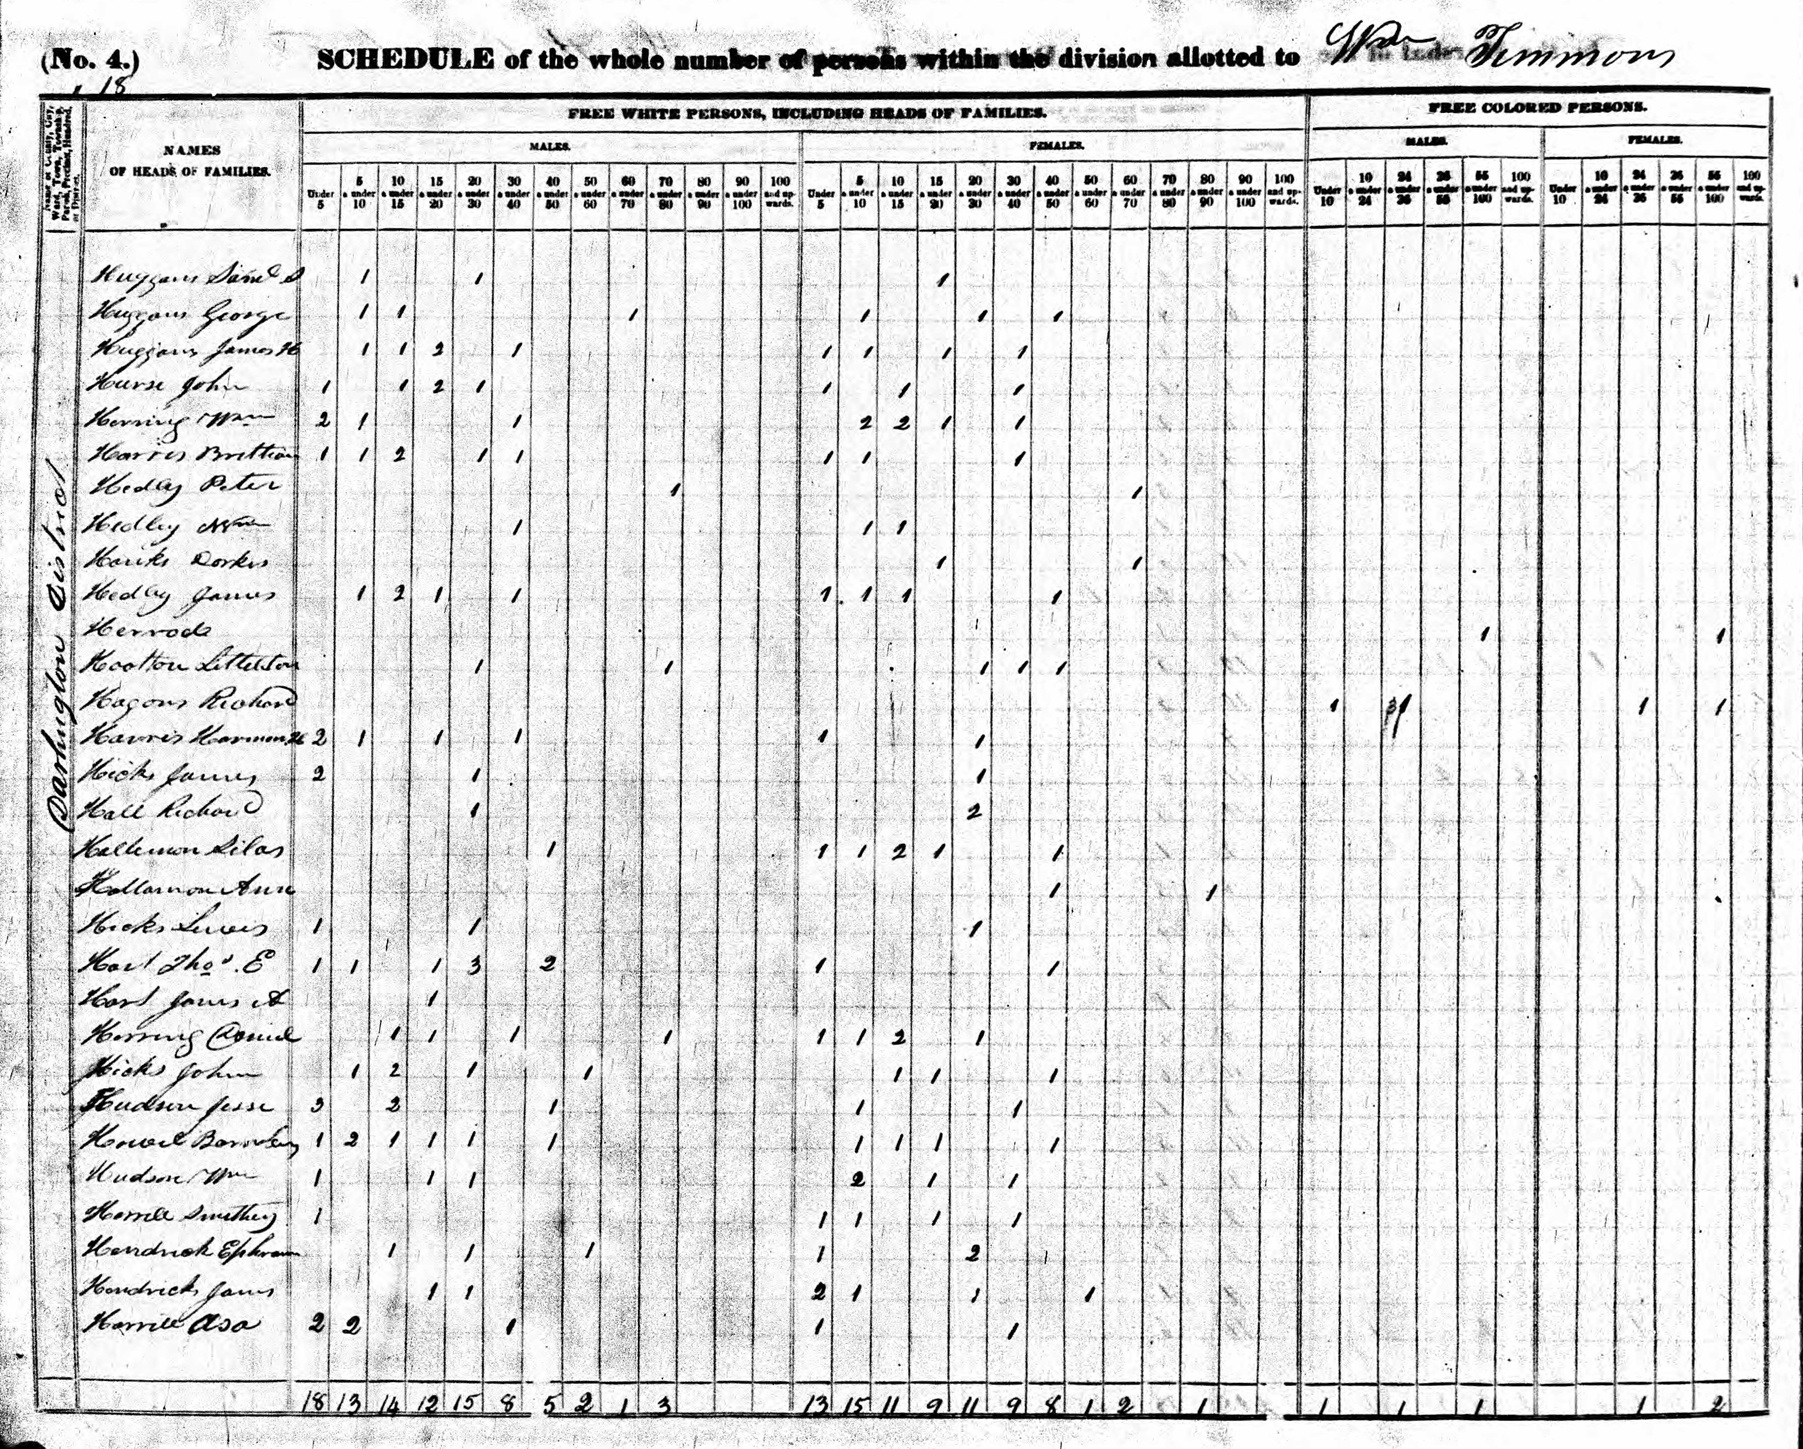 (No. 4.) SCHEDULE of the whole number of persons within the division allotted to Wm Timmons
18
Name of County, City, Ward, Town, Township, Parish, Precinct, Hundred, or District.
NAMES OF HEADS OF FAMILIES.
FREE WHITE PERSONS, INCLUDING HEADS OF FAMILIES.
FREE COLORED PERSONS.
MALES. FEMALES. MALES. FEMALES.
Under 5 5 & under 10 10 & under 15 15 & under 20 20 & under 30 30 & under 40 40 & under 50 50 & under 60 60 & under 70 70 & under 80 80 & under 90 90 & under 100 100 and upwards. Under 5 5 & under 10 10 & under 15 15 & under 20 20 & under 30 30 & under 40 40 & under 50 50 & under 60 60 & under 70 70 & under 80 80 & under 90 90 & under 100 100 and upwards. Under 10 10 & under 24 24 & under 36 36 & under 55 55 & under 100 100 and upwards. Under 10 10 & under 24 24 & under 36 36 & under 55 55 & under 100 100 and upwards.
Darlington District
Huggans Saml S 1 1 1
Huggans George 1 1 1 1 1 1
Huggans James H 1 1 2 1 1 1 1 1
Hurse John 1 1 2 1 1 1 1
Herring Wm 2 1 1 2 2 1 1
Harris Brittian 1 1 2 1 1 1 1 1
Hedley Peter 1 1
Hedley Wm 1 1 1
Hanks Dorkes 1 1
Hedley James 1 2 1 1 1 1 1 1
Herrods 1 1
Hootton Littleton 1 1 1 1 1
Hagons Richard 1 1 1 1
Harris Harmon H 2 1 1 1 1 1
Hicks James 2 1 1
Hall Richard 1 2
Hallemon Silas 1 1 1 2 1 1
Hallamon Ann 1 1
Hicks Lewis 1 1 1
Hart Thos. E 1 1 1 3 2 1 1
Hart James A 1
Herring Daniel 1 1 1 1 1 1 2 1
Hicks John 1 2 1 1 1 1 1
Hudson Jesse 3 2 1 1 1
Howel Barnabey 1 2 1 1 1 1 1 1 1 1
Hudson Wm 1 1 1 2 1 1
Harrell Smithey 1 1 1 1 1
Hendrick Ephraim 1 1 1 1 2
Hendricks James 1 1 2 1 1 1
Harrell Asa 2 2 1 1 1
18 13 14 12 15 8 5 2 1 3 13 15 11 9 11 9 8 1 2 1 1 1 1 1 2